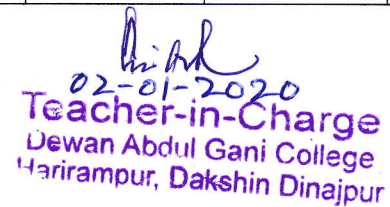 02-01-2020
Teacher-in-Charge
Dewan Abdul Gani College
Harirampur, Dakshin Dinajpur